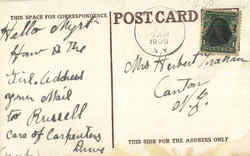 THIS SPACE FOR CORRESPONDENCE
POST CARD
Hello Myrt
How is the
Girl. Address
your Mail
to Russell
care of Carpenters
JAN
1909
Mrs Herbert
Canton
N.Y.
THIS SIDE FOR THE ADDRESS ONLY